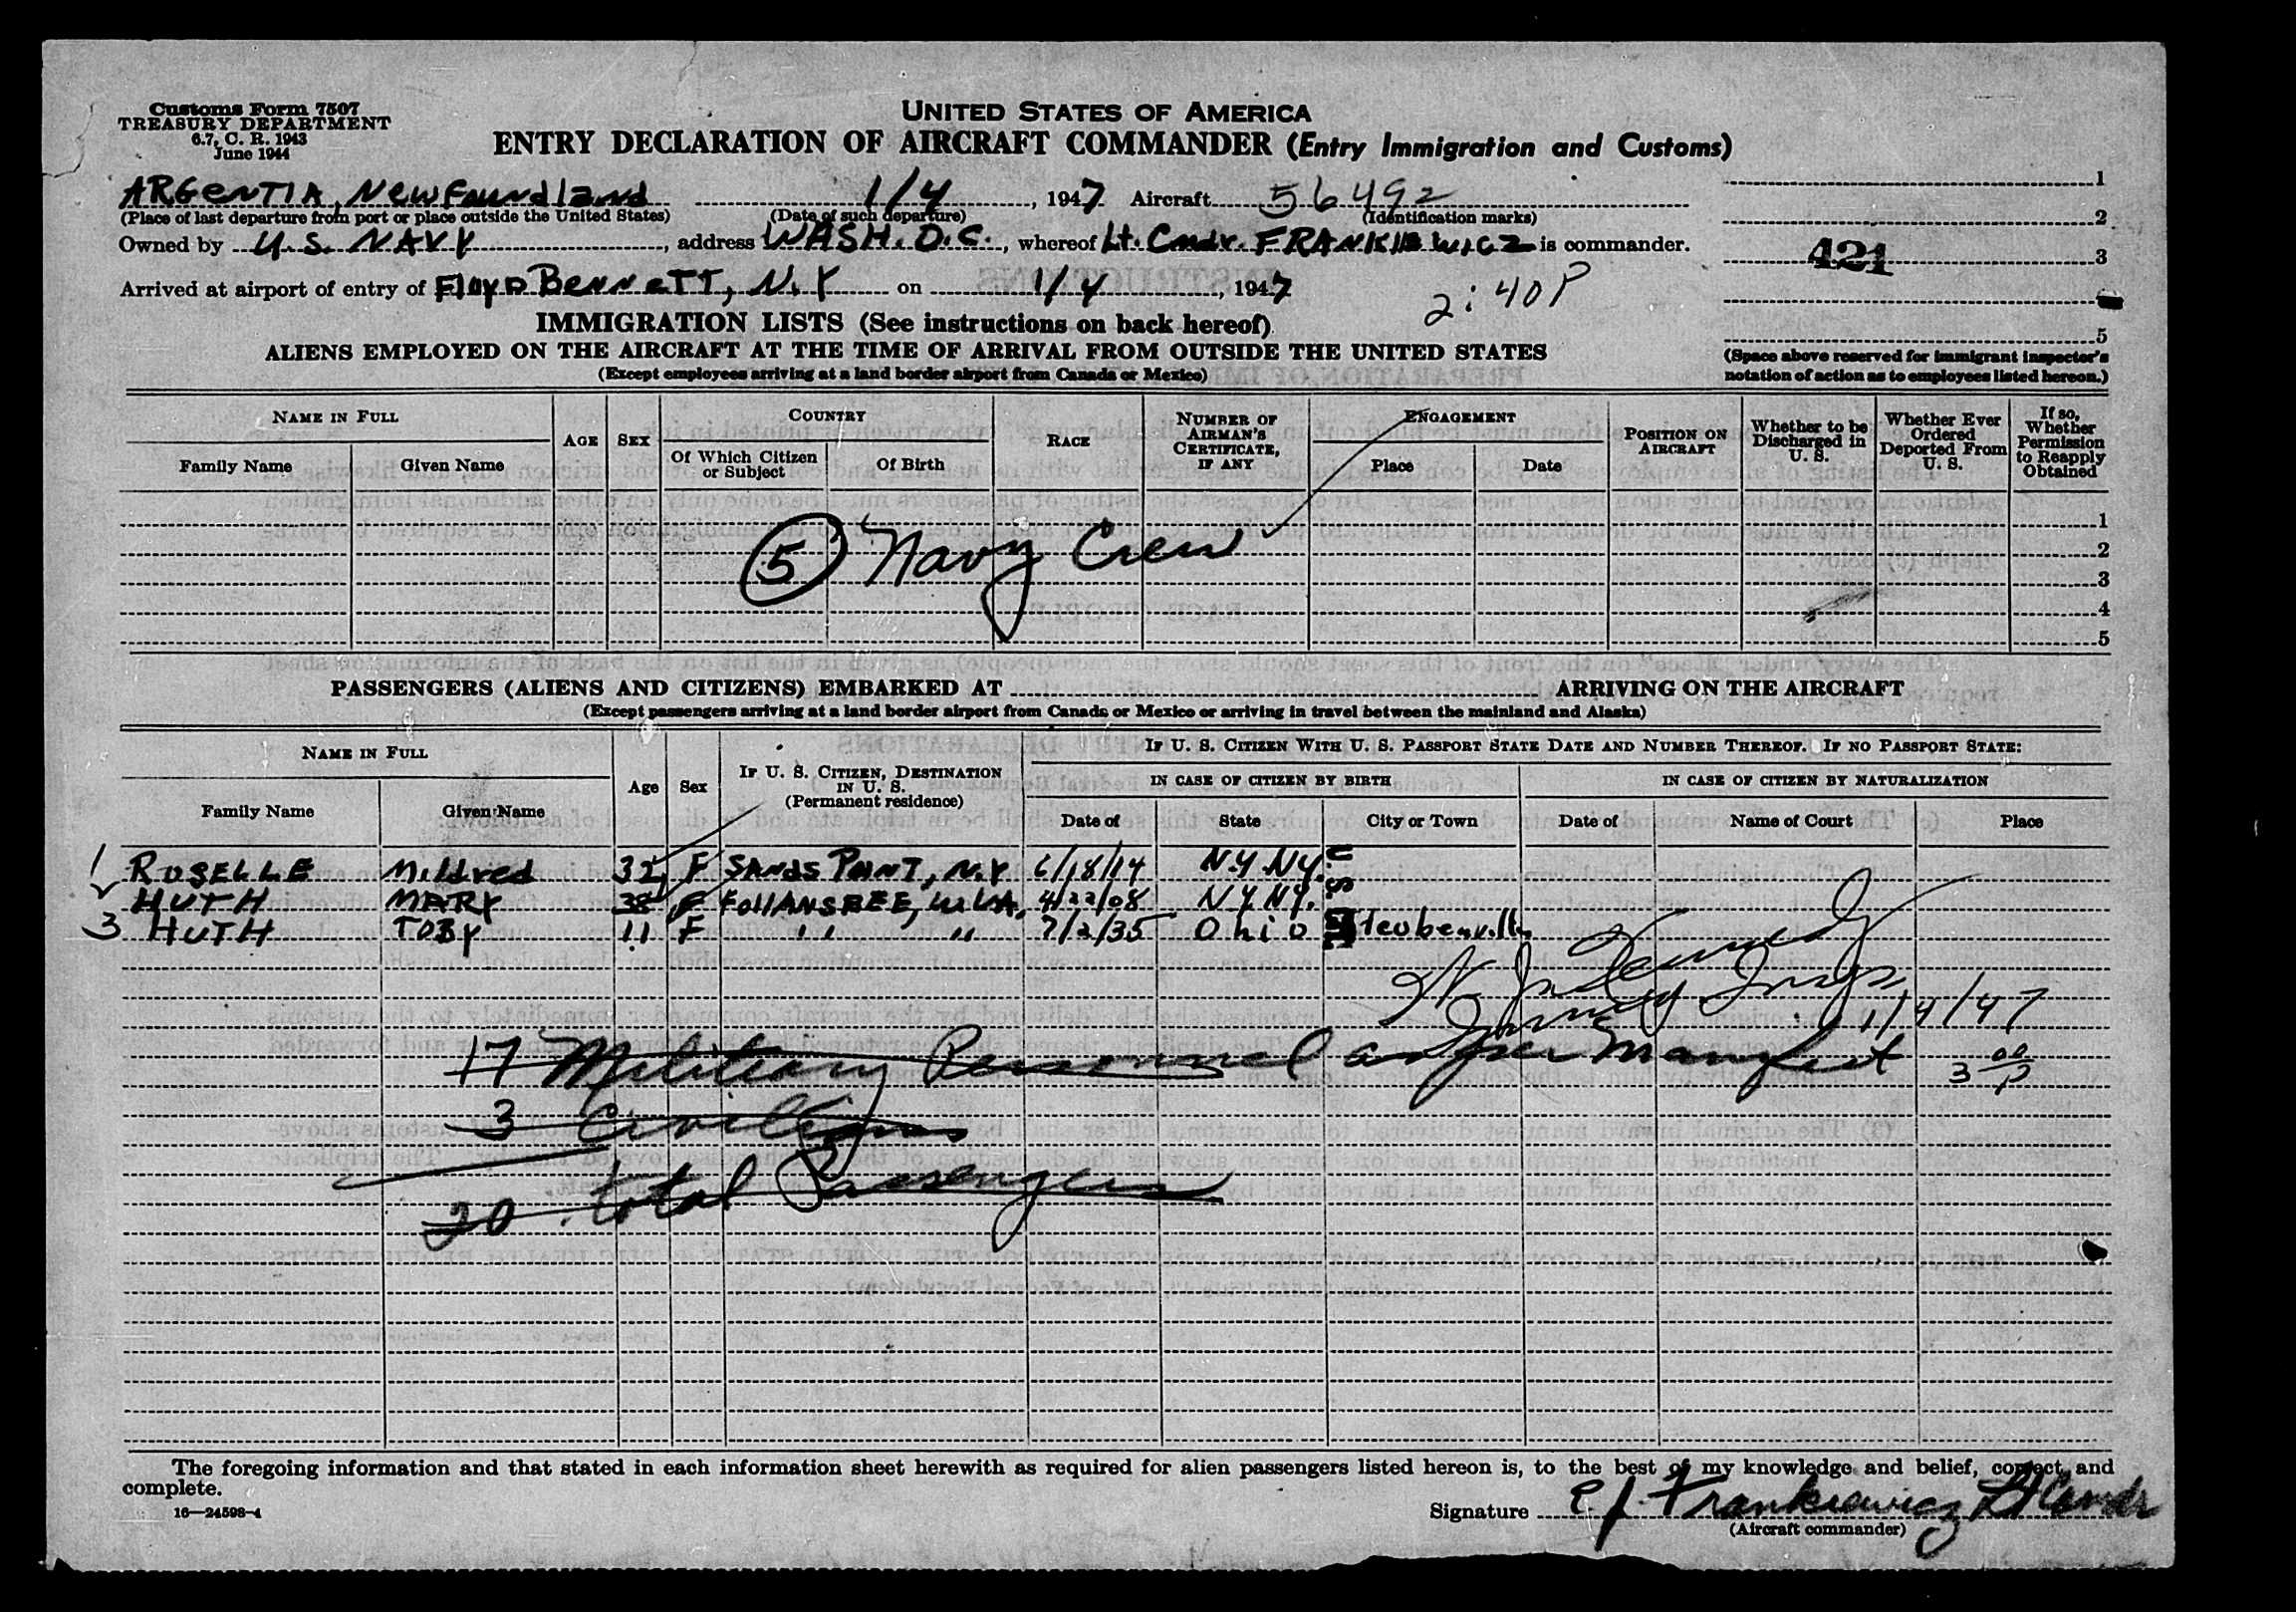 Customs Form 7507
TREASURY DEPARTMENT
6.7, C. R. 1943
June 1944
UNITED STATES OF AMERICA
ENTRY DECLARATION OF AIRCRAFT COMMANDER (Entry Immigration and Customs)
ARGENTIA, NEWFoundland 1/4, 1947 Aircraft 56492 1
(Place of last departure from port or place outside the United States) (Date of such departure) (Identification marks)
2
Owned by U.S. NAVY, address WASH. D.C., whereof Lt. Cmdr. FRANKIEWICZ is commander.
421 3
Arrived at airport of entry of Floyd BENNETT, N.Y on 1/4, 1947 2:40P
IMMIGRATION LISTS (See instructions on back hereof)
5
ALIENS EMPLOYED ON THE AIRCRAFT AT THE TIME OF ARRIVAL FROM OUTSIDE THE UNITED STATES
(Except employees arriving at a land border airport from Canada or Mexico)
(Space above reserved for immigrant inspector's
notation of action as to employees listed hereon.)
NAME IN FULL
Family Name Given Name
AGE SEX
COUNTRY
Of Which Citizen or Subject
Of Birth
RACE
NUMBER OF AIRMAN'S CERTIFICATE, IF ANY
ENGAGEMENT
Place Date
POSITION ON AIRCRAFT
Whether to be Discharged in U. S.
Whether Ever Ordered Deported From U. S.
If so, Whether Permission to Reapply Obtained
1
5 Navy Crew
2
3
4
5
PASSENGERS (ALIENS AND CITIZENS) EMBARKED AT ARRIVING ON THE AIRCRAFT
(Except passengers arriving at a land border airport from Canada or Mexico or arriving in travel between the mainland and Alaska)
NAME IN FULL
Family Name Given Name
Age Sex
IF U. S. CITIZEN, DESTINATION IN U. S. (Permanent residence)
IF U. S. CITIZEN WITH U. S. PASSPORT STATE DATE AND NUMBER THEREOF. IF NO PASSPORT STATE:
IN CASE OF CITIZEN BY BIRTH
IN CASE OF CITIZEN BY NATURALIZATION
Date of State City or Town Date of Name of Court Place
1 ROSELLE Mildred 32 F SANDS POINT, N.Y 6/18/14 N.Y. N.Y.
HUTH MARY 38 F FollANSBEE, W. VA. 4/22/08 N.Y. N.Y.
3 HUTH TOBY 11 F " " 7/2/35 Ohio Steubenville
1/4/47
17 Military Personnel as per Manifest 3 00 P
3 Civilians
20 total Passengers
The foregoing information and that stated in each information sheet herewith as required for alien passengers listed hereon is, to the best of my knowledge and belief, correct and
complete.
16—24598-4
Signature E J. Frankiewicz Lt Comdr
(Aircraft commander)